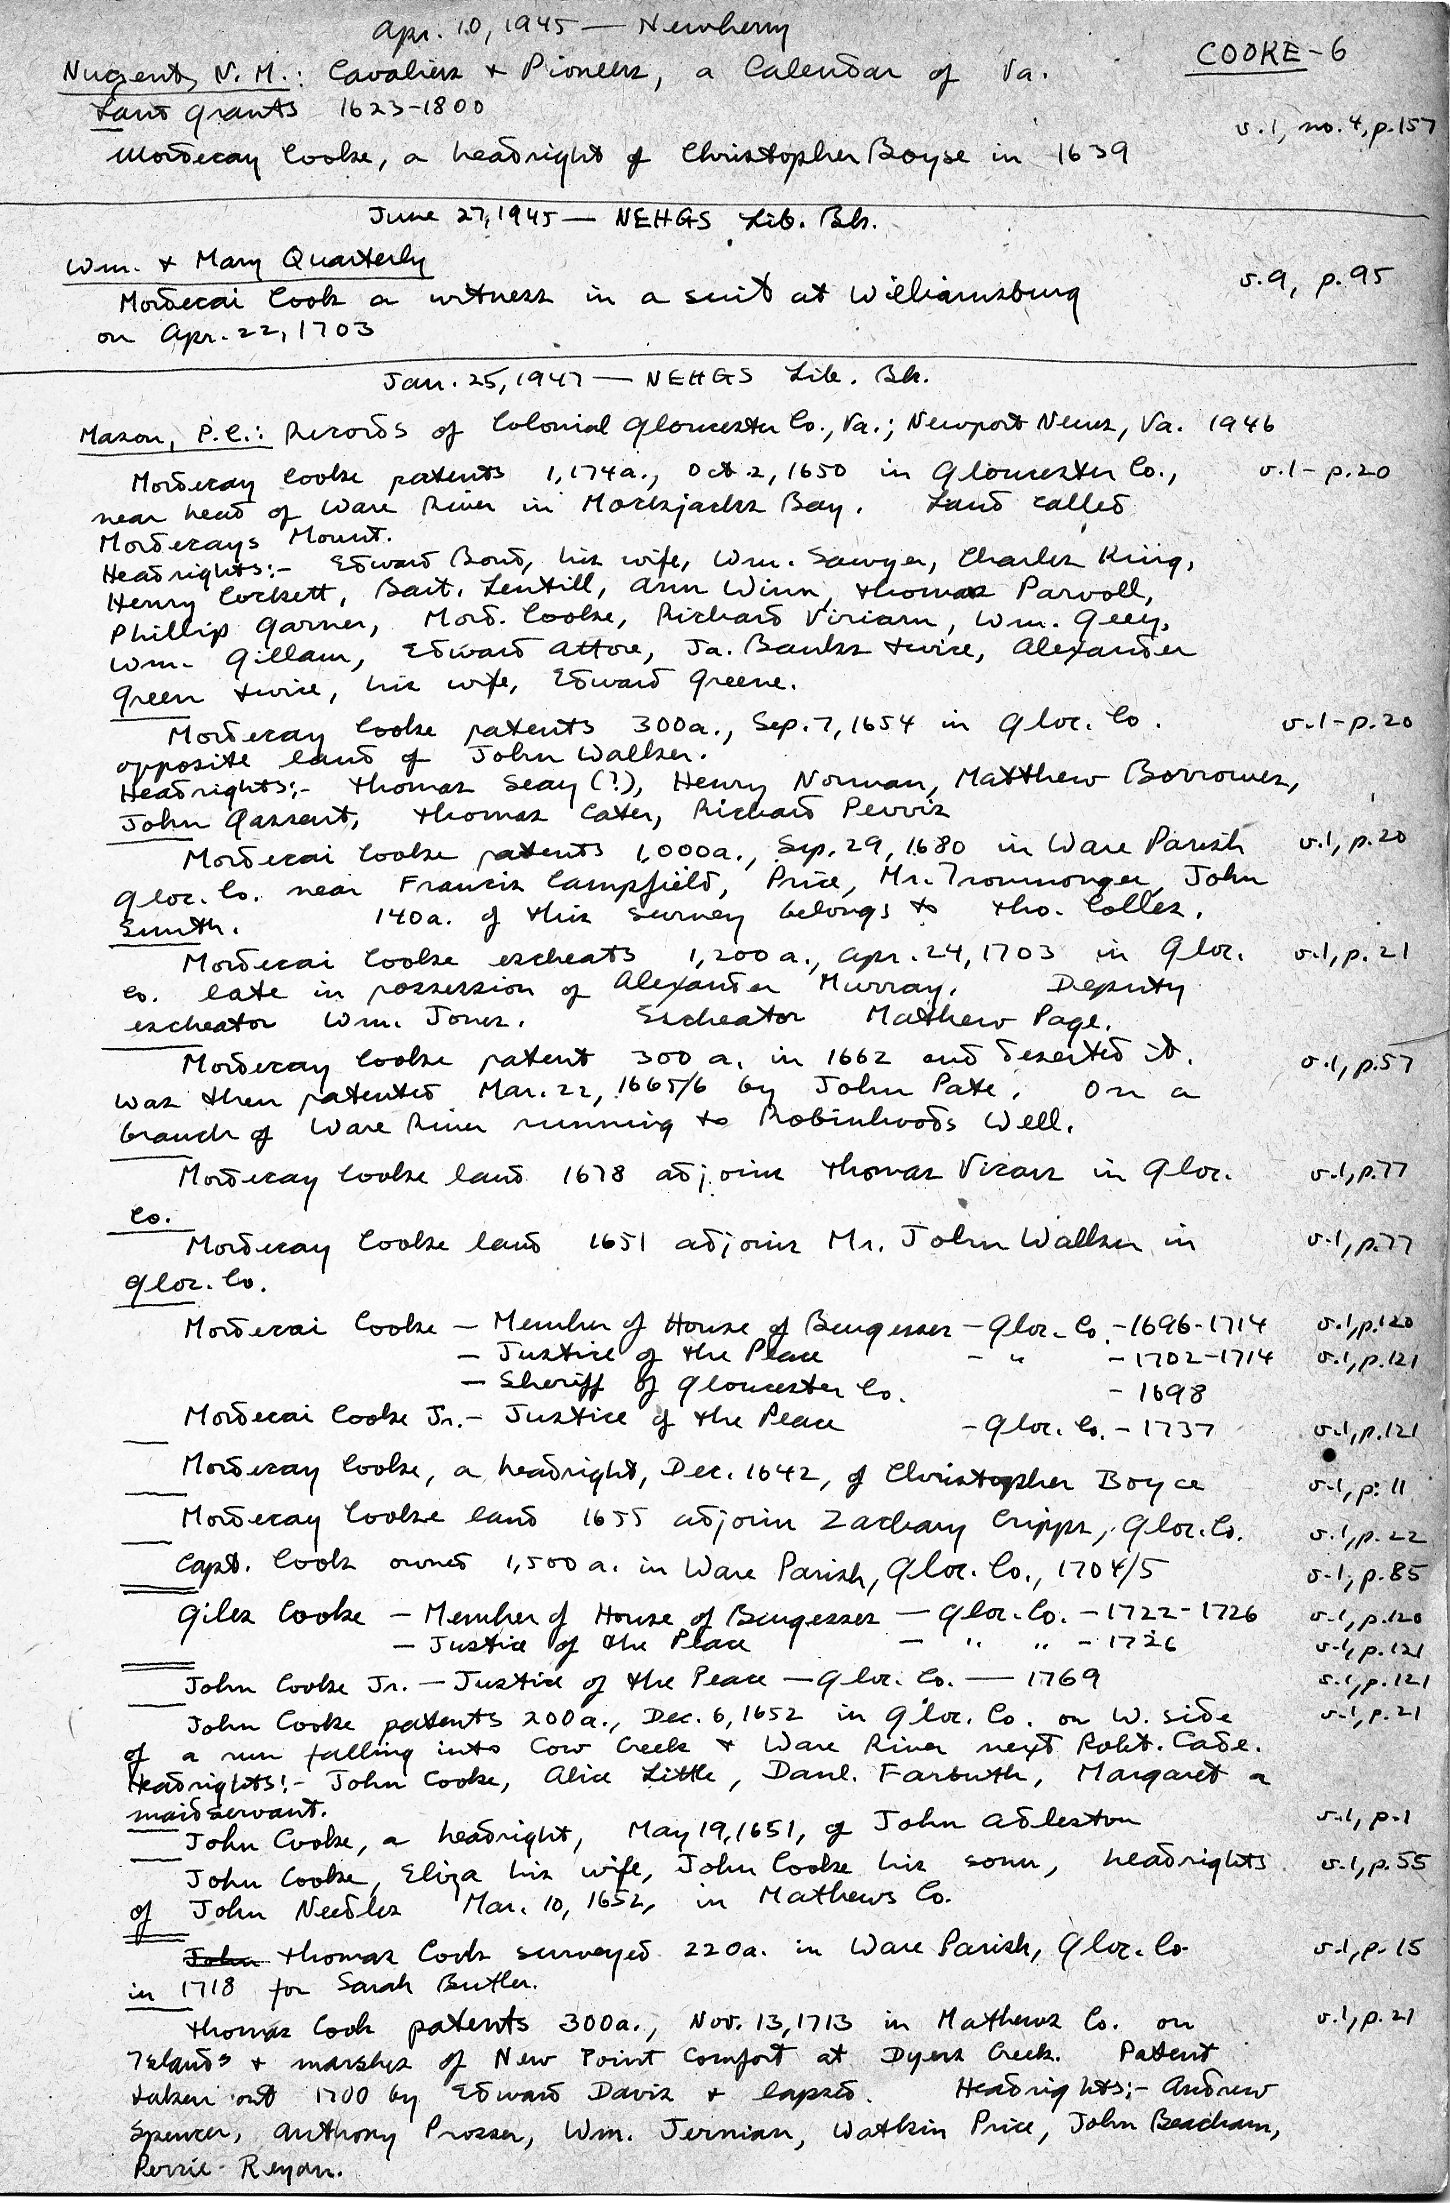 Apr. 10, 1945 — Newberry
COOKE-6
Nugent, N. M.: Cavaliers + Pioneers, a Calendar of Va.
Land Grants 1623-1800
v.1, no.4, p.157
Mordecay Cooke, a headright of Christopher Boyse in 1639
June 27, 1945 — NEHGS Lib. Bk.
Wm. + Mary Quarterly
v.9, p.95
Mordecai Cook a witness in a suit at Williamsburg
on Apr. 22, 1703
Jan. 25, 1947 — NEHGS Lib. Bk.
Mason, P.C.: Records of Colonial Gloucester Co., Va.; Newport News, Va. 1946
Mordecay Cooke patents 1,174a., Oct 2, 1650 in Gloucester Co., v.1-p.20
near head of Ware River in Mockjacks Bay. Land called
Mordecays Mount.
Headrights:- Edward Bond, his wife, Wm. Sawyer, Charles King,
Henry Corkett, Bart. Lentill, Ann Winn, Thomas Parvoll,
Phillip Garner, Mord. Cooke, Richard Viriam, Wm. Geey,
Wm. Gillam, Edward Attore, Ja. Banks twice, Alexander
Green twice, his wife, Edward Greene.
Mordecay Cooke patents 300a., Sep. 7, 1654 in Gloc. Co. v.1-p.20
opposite land of John Walker.
Headrights:- Thomas Seay (?), Henry Norman, Matthew Borrowes,
John Gassent, Thomas Cater, Richard Pervis
Mordecai Cooke patents 1,000a., Sep. 29, 1680 in Ware Parish v.1, p.20
Gloc. Co. near Francis Campfield, Price, Mr. Ironmonger, John
Smith. 140a. of this survey belongs to Tho. Colles.
Mordecai Cooke escheats 1,200a., Apr. 24, 1703 in Gloc. v.1, p.21
Co. late in possession of Alexander Murray. Deputy
escheator Wm. Jones. Escheator Mathew Page.
Mordecay Cooke patent 300 a. in 1662 and deserted it. v.1, p.57
Was then patented Mar. 22, 1665/6 by John Pate. On a
branch of Ware River running to Robinhoods Well.
Mordecay Cooke land 1678 adjoins Thomas Vicars in Gloc. v.1, p.77
Co.
Mordecay Cooke land 1651 adjoins Mr. John Walker in v.1, p.77
Gloc. Co.
Mordecai Cooke — Member of House of Burgesses — Gloc. Co. - 1696-1714 v.1, p.120
— Justice of the Peace - " - 1702-1714 v.1, p.121
— Sheriff of Gloucester Co. - 1698
Mordecai Cooke Jr. - Justice of the Peace - Gloc. Co. - 1737 v.1, p.121
Mordecay Cooke, a headright, Dec. 1642, of Christopher Boyce v.1, p.11
Mordecay Cooke land 1655 adjoin Zachary Cripps, Gloc. Co. v.1, p.22
Capt. Cook owned 1,500a. in Ware Parish, Gloc. Co., 1704/5 v.1, p.85
Giles Cooke — Member of House of Burgesses — Gloc. Co. - 1722-1726 v.1, p.120
— Justice of the Peace — " " - 1726 v.1, p.121
John Cooke Jr. — Justice of the Peace — Gloc. Co. — 1769 v.1, p.121
John Cooke patents 200a., Dec. 6, 1652 in Gloc. Co. on W. side v.1, p.21
of a run falling into Cow Creek + Ware River next Robt. Cade.
Headrights:- John Cooke, Alice Little, Danl. Farbuth, Margaret a
maidservant.
John Cooke, a headright, May 19, 1651, of John Adleston v.1, p.1
John Cooke, Eliza his wife, John Cooke his sonn, headrights v.1, p.55
of John Needles Mar. 10, 1652, in Mathews Co.
John Thomas Cook surveyed 220a. in Ware Parish, Gloc. Co. v.1, p.15
in 1718 for Sarah Butler.
Thomas Cook patents 300a., Nov. 13, 1713 in Mathews Co. on v.1, p.21
Islands + marshes of New Point Comfort at Dyers Creek. Patent
taken out 1700 by Edward Davis + lapsed. Headrights:- Andrew
Spencer, Anthony Prosser, Wm. Jernian, Watkin Price, John Beacham,
Perrie Reyan.